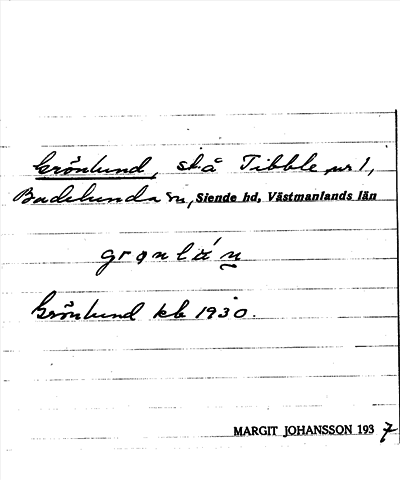 Grönlund, skå Tibble nr 1,
Badelunda sn, Siende hd, Västmanlands län
Grönlund kb 1930.
MARGIT JOHANSSON 1937